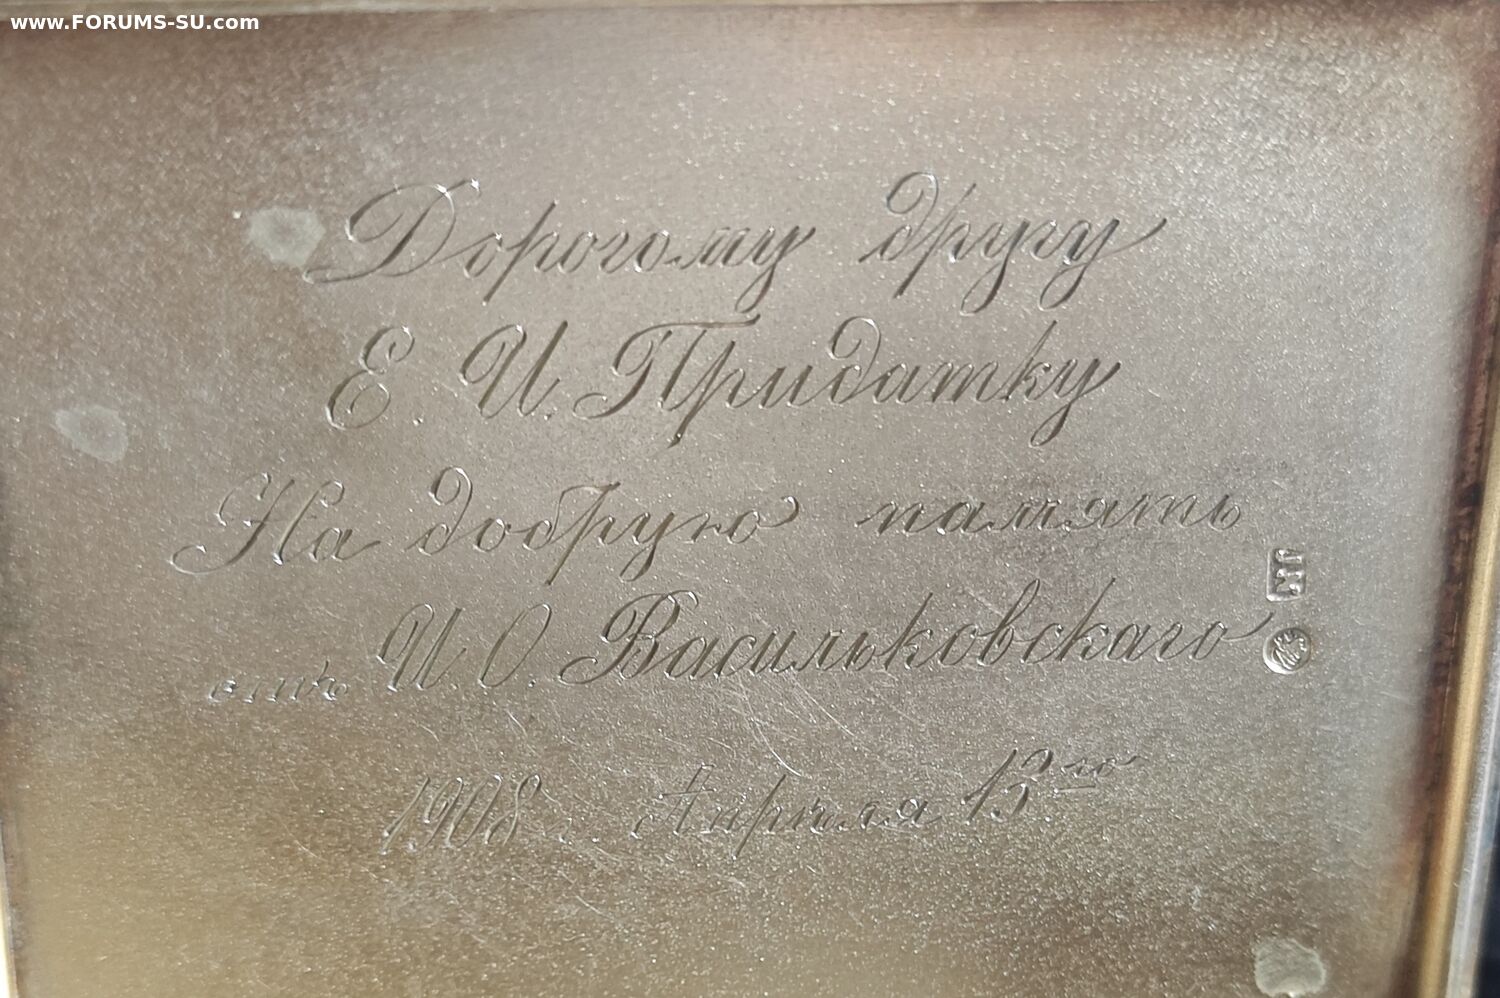 www.FORUMS-SU.com
Дорогому другу
Е. И. Придатку
На добрую память
отъ И. О. Васильковскаго
1908 г. Апрѣля 13го